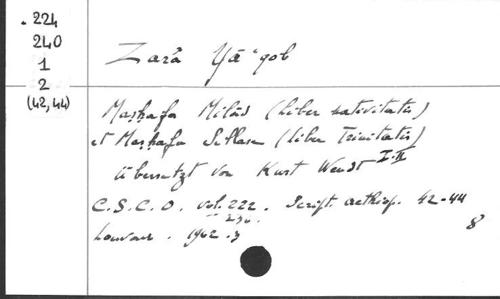 . 224
240
1
2
(42, 44)
Zarā Yā‘qob
Maṣḥafa Milād (Liber nativitatis)
et Maṣḥafa Sellase (Liber Trinitatis)
übersetzt von Kurt Wendt I-II
C.S.C.O. vol. 222. Script. aethiop. 42-44
236.
Louvain. 1962.3
8